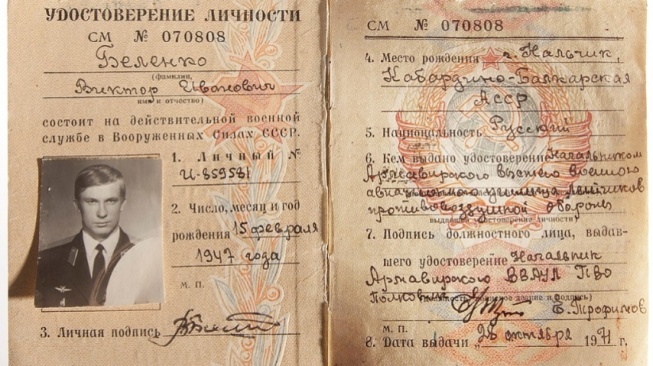 УДОСТОВЕРЕНИЕ ЛИЧНОСТИ
СМ № 070808
Беленко
(фамилия,
Виктор Иванович
имя и отчество)
состоит на действительной военной
службе в Вооруженных Силах СССР.
1. Личный №
И-859531
2. Число, месяц и год
рождения 15 февраля
1947 года
М. П.
3. Личная подпись
СМ № 070808
4. Место рождения г. Нальчик,
Кабардино-Балкарская
АССР
5. Национальность Русский
6. Кем выдано удостоверение Начальником
Армавирского высшего военного
авиационного училища летчиков
противовоздушной обороны
выдавшего удостоверение личности)
7. Подпись должностного лица, выдав-
шего удостоверение Начальник
Армавирского ВВАУЛ ПВО
Полковник Е. Трофимов
М. П.
8. Дата выдачи 28 октября 1971